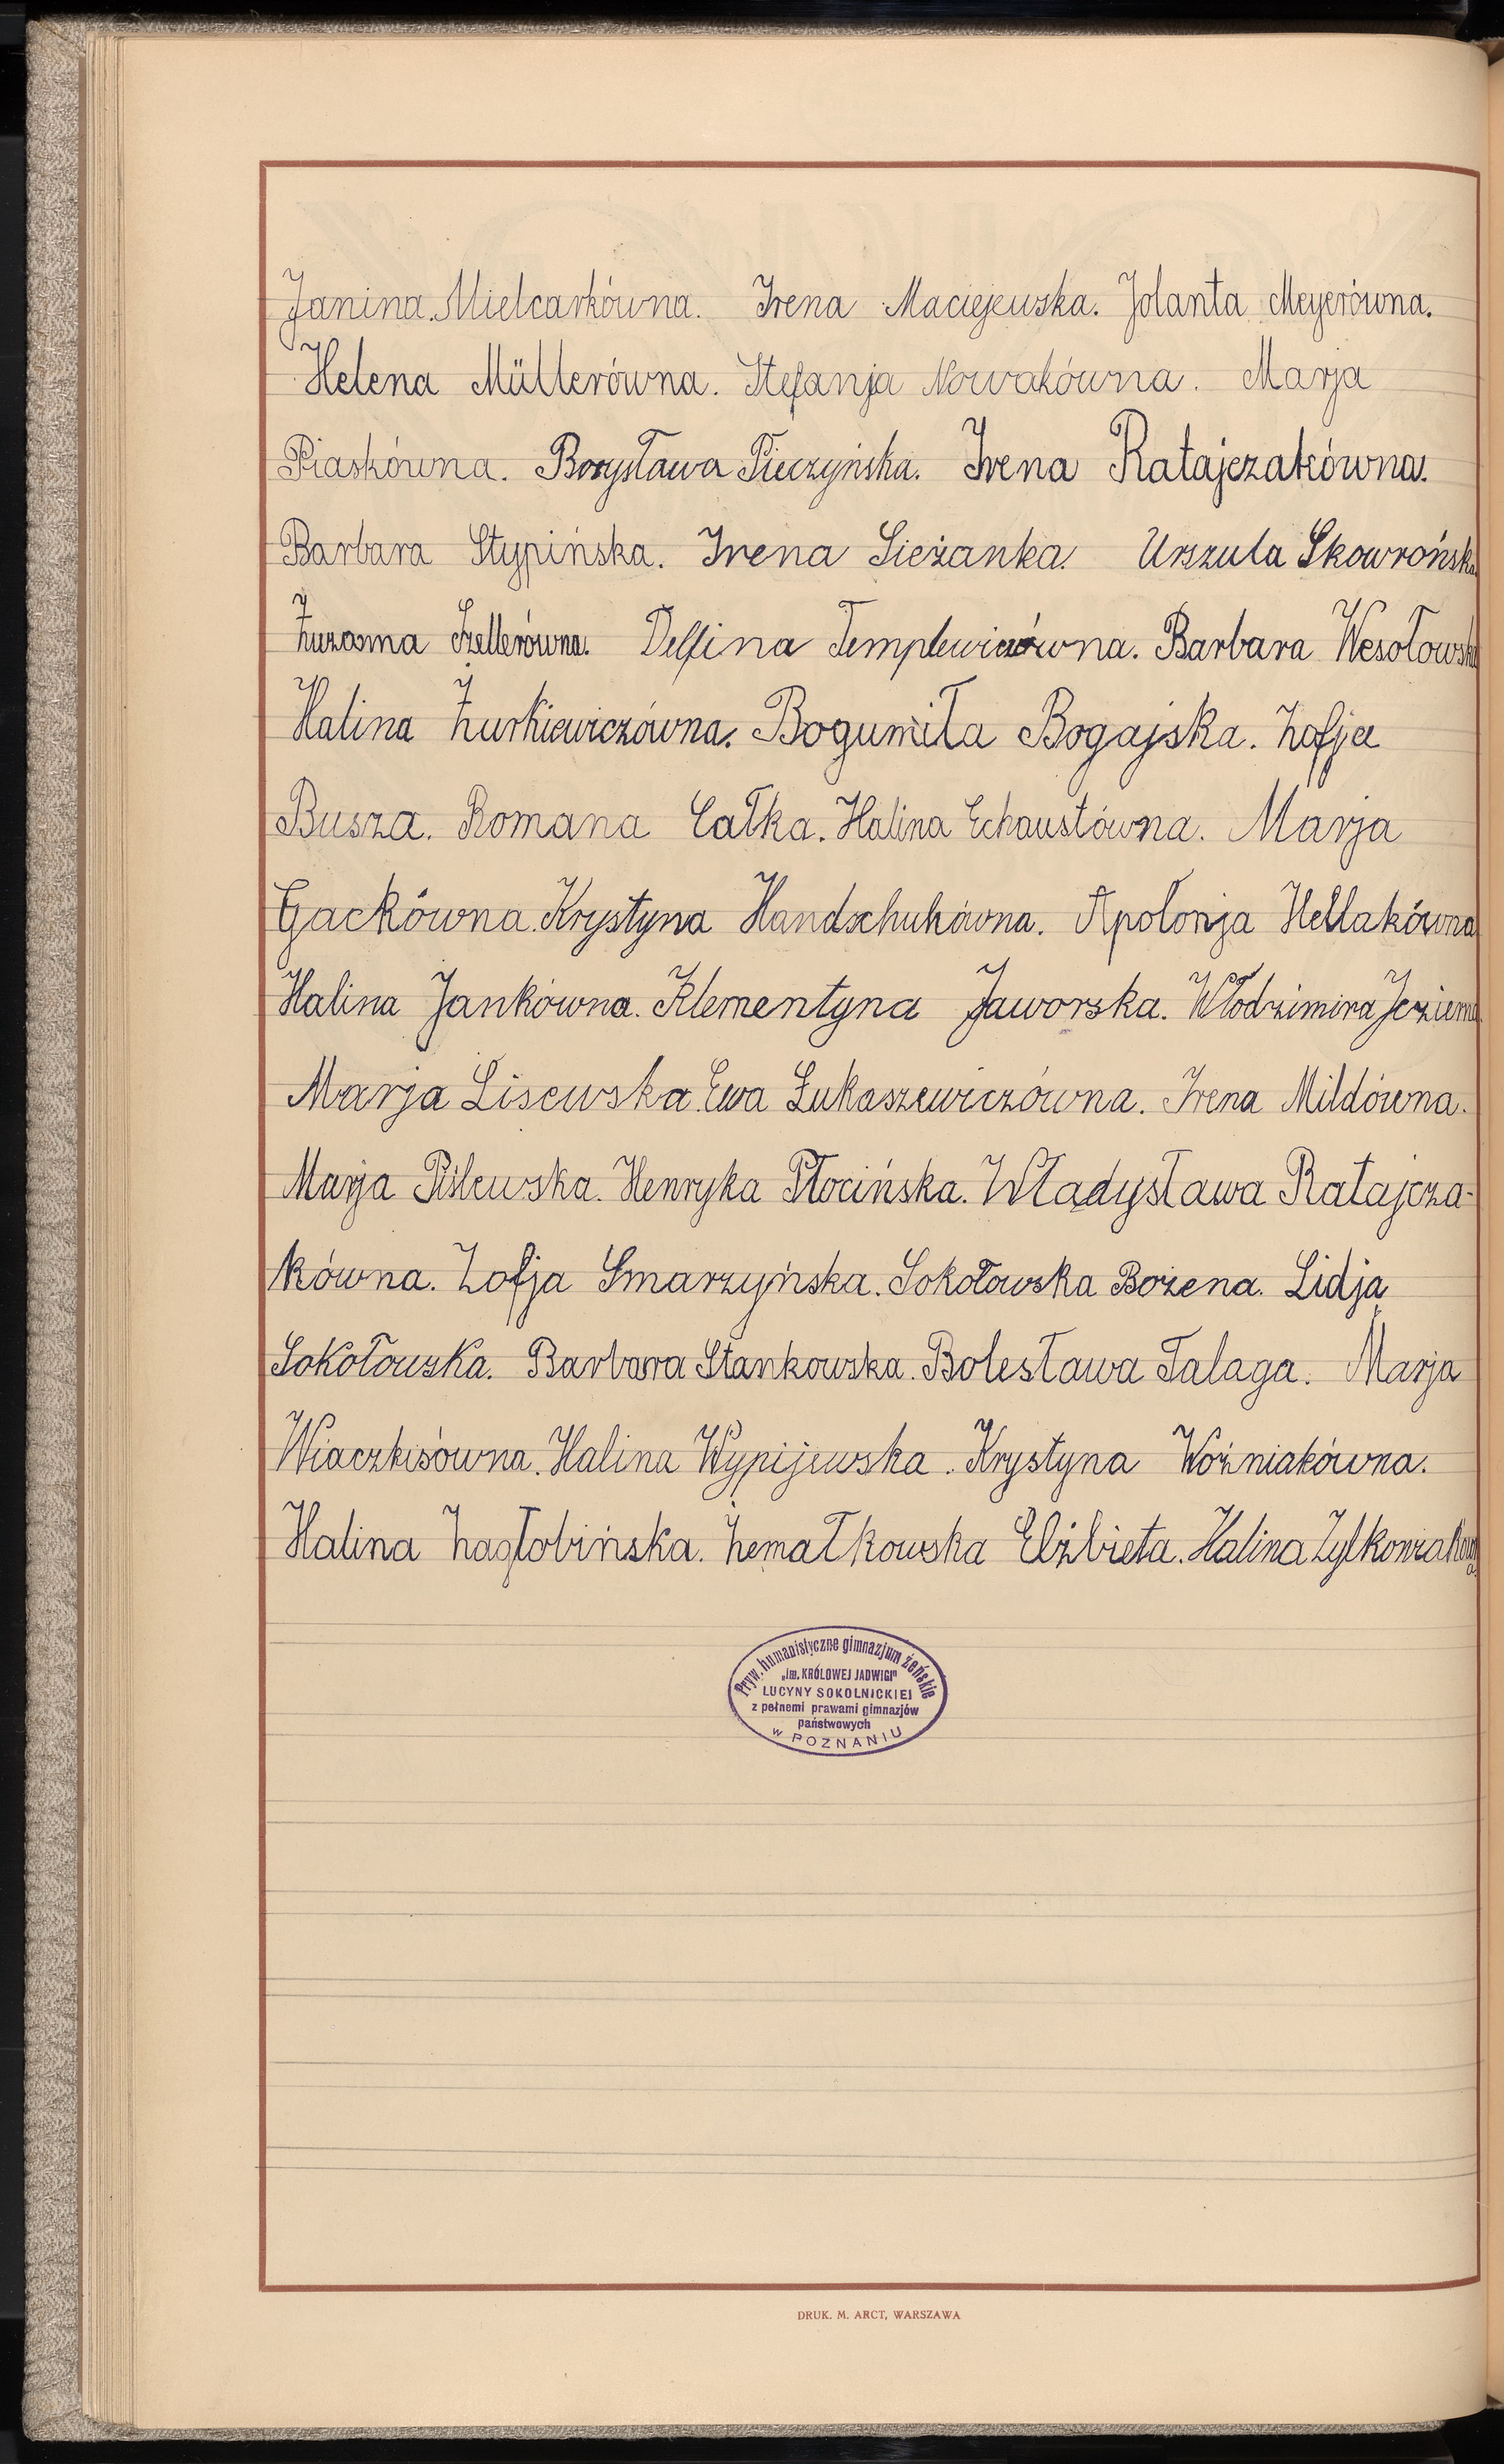 Janina Mielcarkówna. Irena Maciejewska. Jolanta Meyerówna.
Helena Müllerówna. Stefanja Nowakówna. Marja
Piaskówna. Borysława Pieczyńska. Irena Ratajczakówna.
Barbara Stypińska. Irena Sieżanka. Urszula Skowrońska
Zuzanna Szellerówna. Delfina Templewiczówna. Barbara Wesołowska
Halina Żurkiewiczówna. Bogumiła Bogajska. Zofja
Busza. Romana Całka. Halina Echaustówna. Marja
Gackówna. Krystyna Handschuhówna. Apolonja Hellakówna
Halina Jankówna. Klementyna Jaworska. Włodzimira
Marja Lisewska. Ewa Łukaszewiczówna. Irena Mildówna.
Marja Piślewska. Henryka Płocińska. Władysława Ratajcza-
kówna. Zofja Smarzyńska. Sokołowska Bożena. Lidja
Sokołowska. Barbara Stankowska. Bolesława Talaga. Marja
Wiaczkisówna. Halina Wypijewska. Krystyna Woźniakówna.
Halina Zagłobińska. Żemałkowska Elżbieta. Halina
Pryw. humanistyczne gimnazjum żeńskie
„im. KRÓLOWEJ JADWIGI"
LUCYNY SOKOLNICKIEJ
z pełnemi prawami gimnazjów
państwowych
w POZNANIU
DRUK. M. ARCT, WARSZAWA